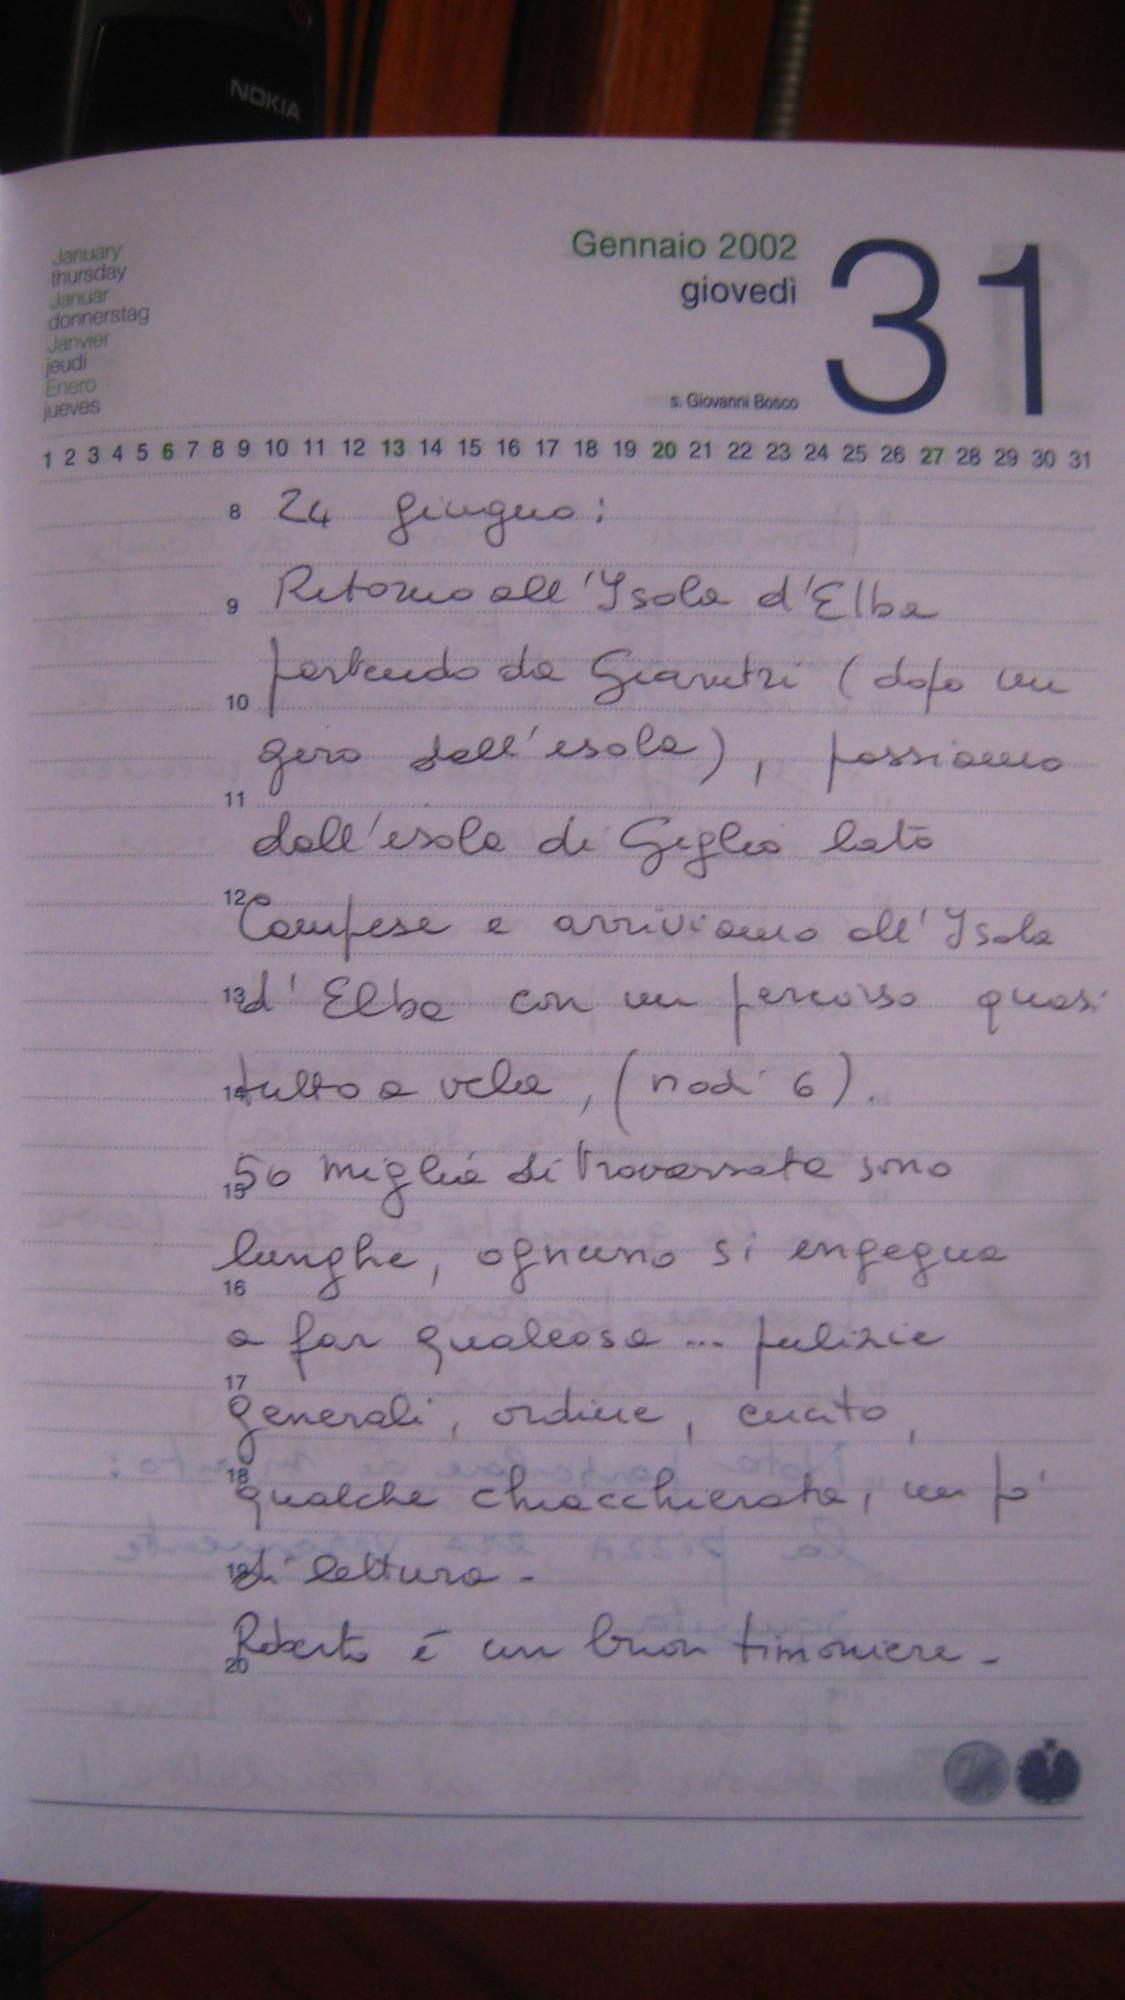 NOKIA
January
thursday
Januar
donnerstag
Janvier
jeudi
Enero
jueves
Gennaio 2002
giovedì
31
s. Giovanni Bosco
1 2 3 4 5 6 7 8 9 10 11 12 13 14 15 16 17 18 19 20 21 22 23 24 25 26 27 28 29 30 31
8 24 giugno:
9 Ritorno all'Isola d'Elba
partendo da Gianutri (dopo un
10
giro dell'isola), passiamo
11
dall'isola di Giglio lato
12
Campese e arriviamo all'Isola
13 d'Elba con un percorso quasi
14 tutto a vela, (nodi 6).
15 50 miglia di traversata sono
lunghe, ognuno si ingegna
16
a far qualcosa ... pulizie
17
generali, ordine, cucito,
18
qualche chiacchierata, un pò
19 di lettura -
Roberto è un buon timoniere -
20